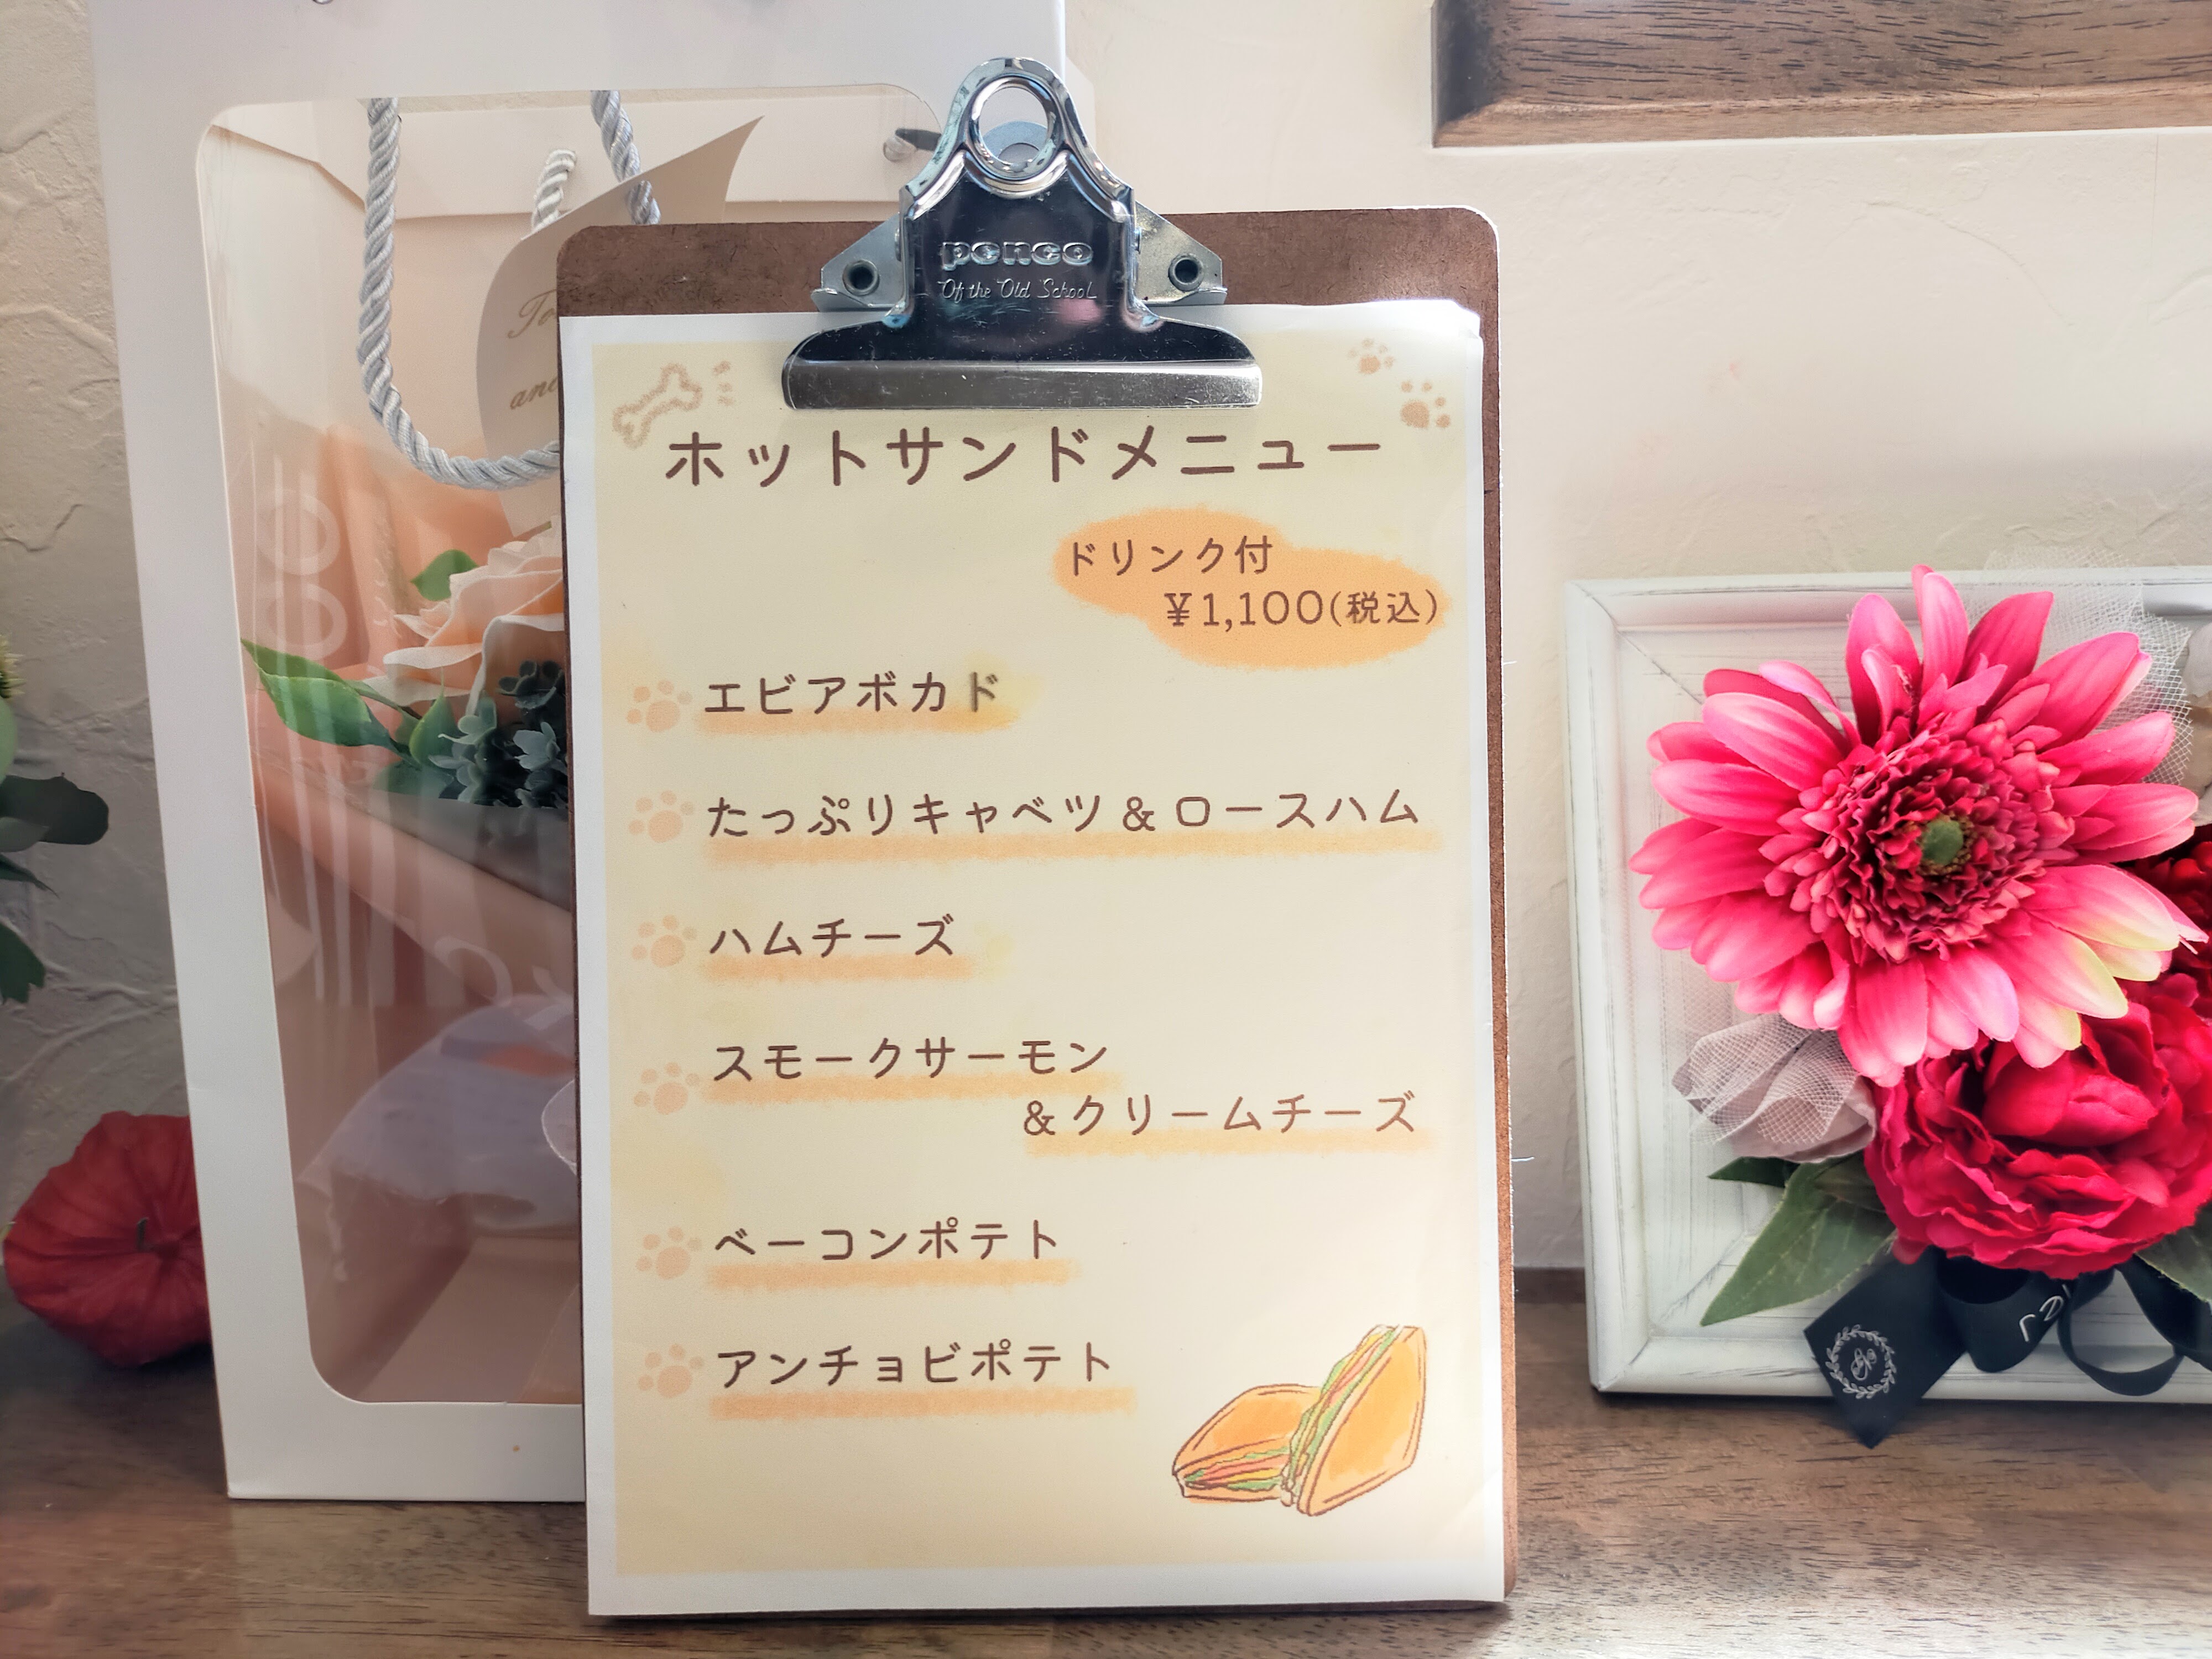 penco
Of the Old School
ホットサンドメニュー
ドリンク付
¥1,100(税込)
エビアボカド
たっぷりキャベツ&ロースハム
ハムチーズ
スモークサーモン
&クリームチーズ
ベーコンポテト
アンチョビポテト